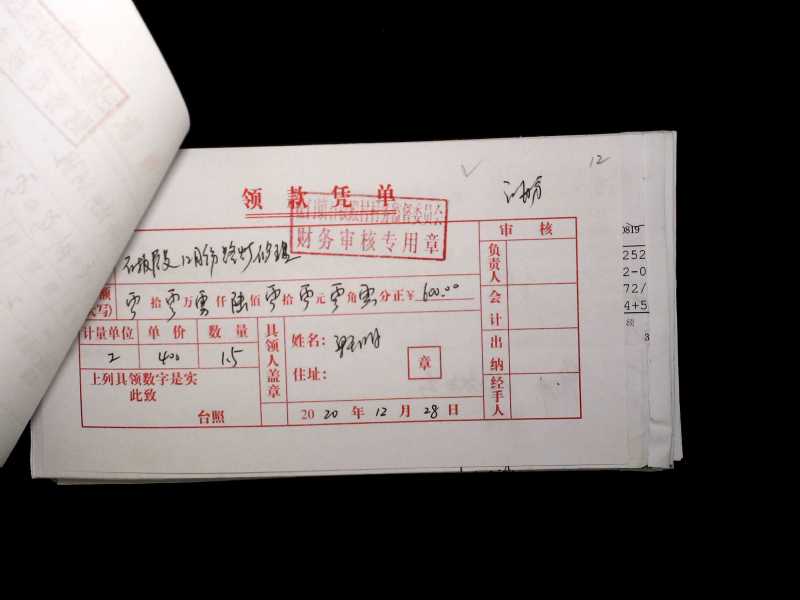 12
领款凭单
财务审核专用章
审核
12月份路灯修理
负责人
零拾零万零仟陆佰零拾零元零角零分正¥600.00
会计
计量单位 单价 数量
具领人盖章
姓名：
2 400 1.5
出纳
章
住址：
上列具领数字是实
此致
经手人
台照
2020年12月28日
0819
252
2-0
72/
4+5